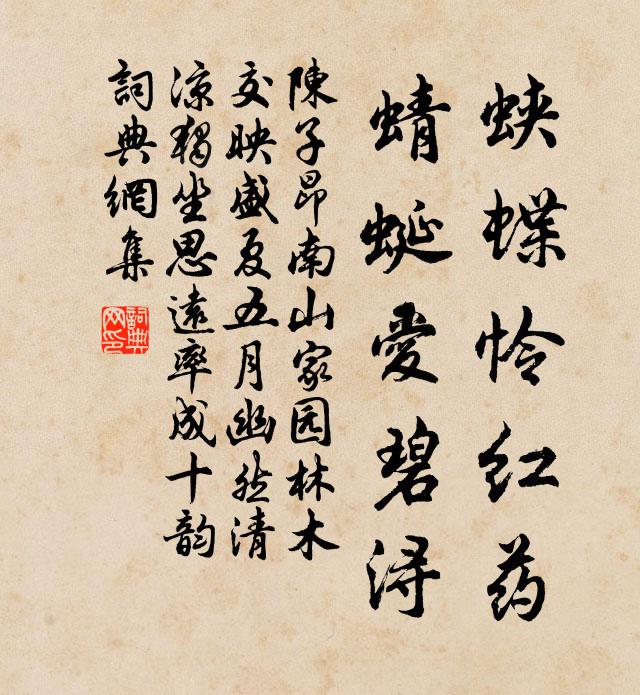 蛱蝶怜红药
蜻蜓愛碧潯
陳子昂南山家园林木
交映盛夏五月幽然清
凉獨坐思遠率成十韵
詞典網集
詞典
网印